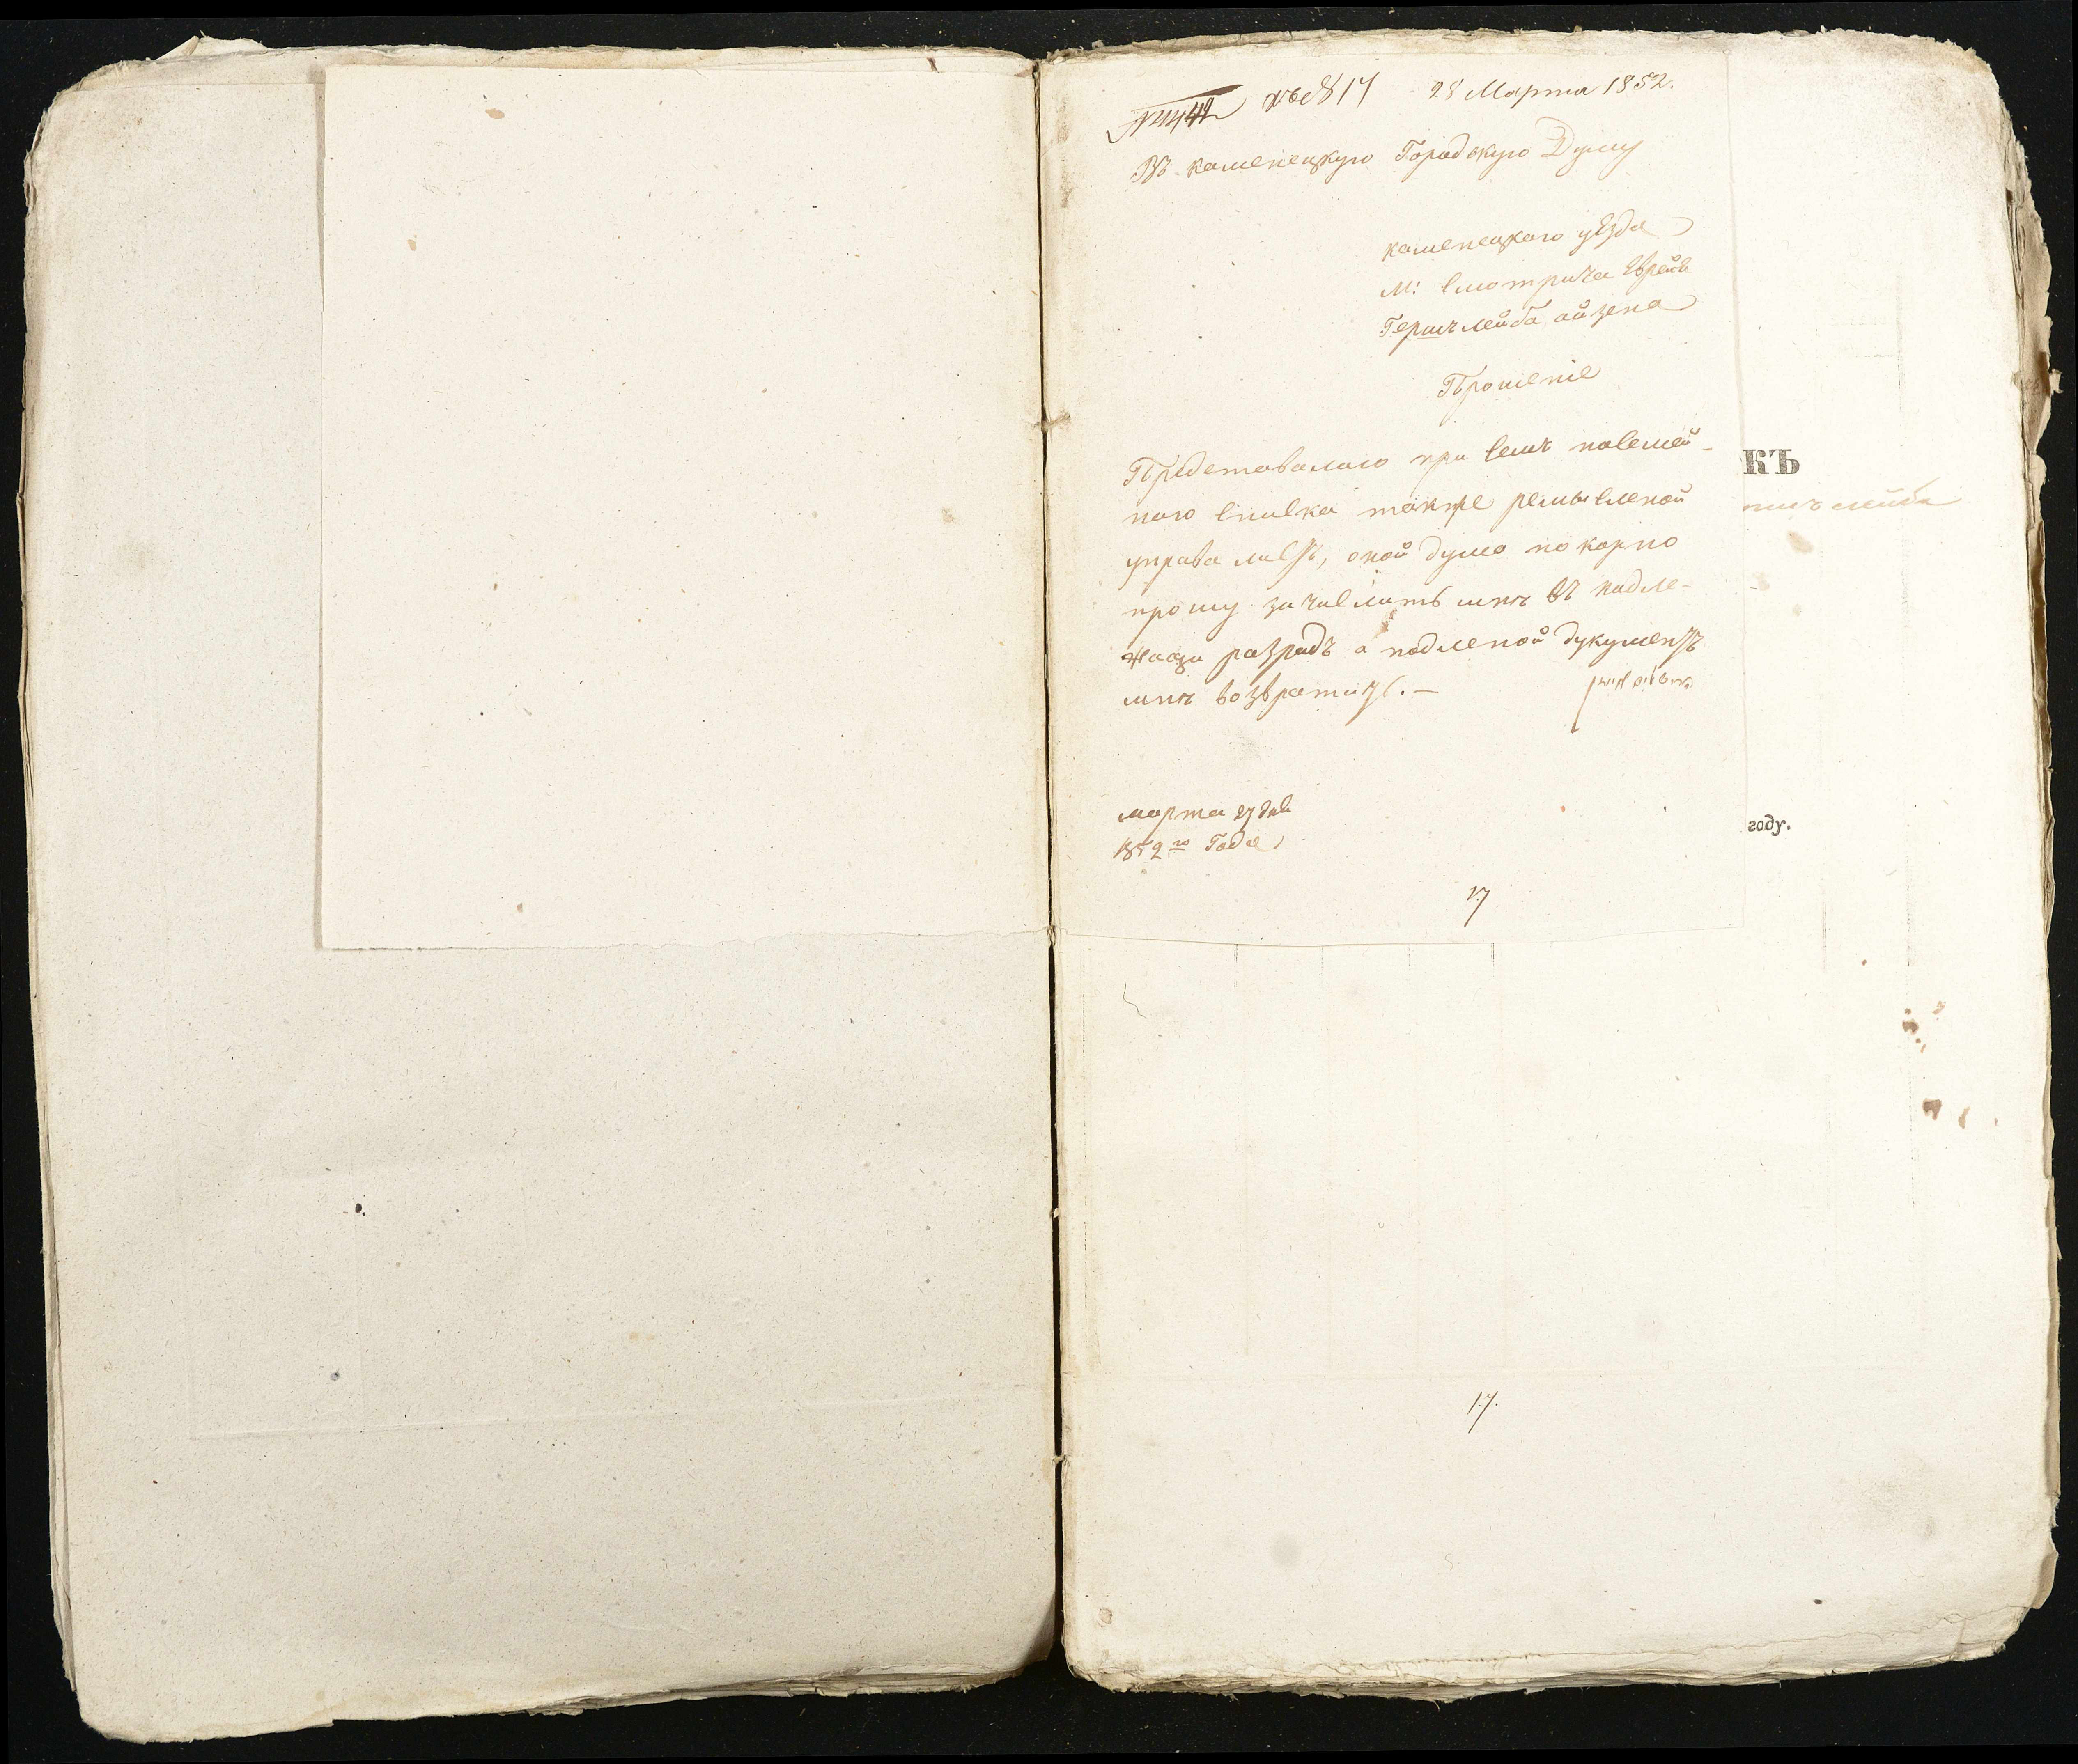 къ № 17 28 Марта 1852.
Въ каменецкую Городскую Думу
каменецкаго уѣзда
м: Смотрича Еврейа
Гершълейба айзена
Прошеніе
Представамаю при семъ посемей-
наго списка также ремысленой
управа листъ, оной дума по корно
прошу зачислить мнѣ въ надле-
жащи разрадъ а подленой дукументъ
мнѣ возвратить. —
марта 27 дня
1852 го Года
17
КЪ
лейба
году.
17.